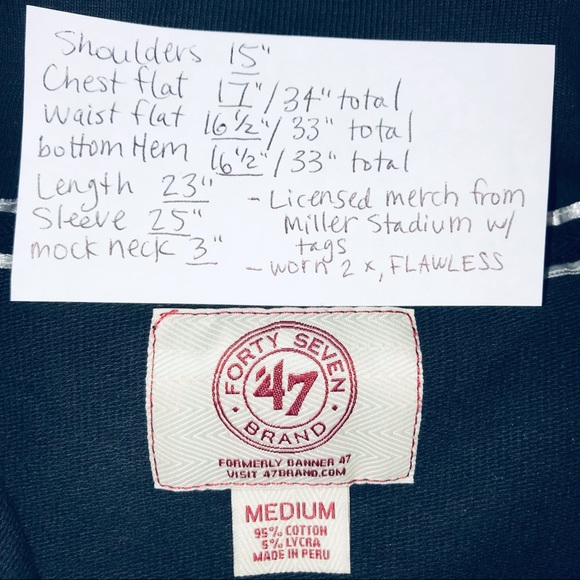 Shoulders 15"
Chest flat 17"/34" total
Waist flat 16 1/2"/33" total
bottom Hem 16 1/2"/33" total
Length 23"
Sleeve 25"
mock neck 3"
- Licensed merch from
Miller Stadium w/
tags
- worn 2x, FLAWLESS
FORTY SEVEN
'47
BRAND
FORMERLY BANNER 47
VISIT 47BRAND.COM
MEDIUM
95% COTTON
5% LYCRA
MADE IN PERU